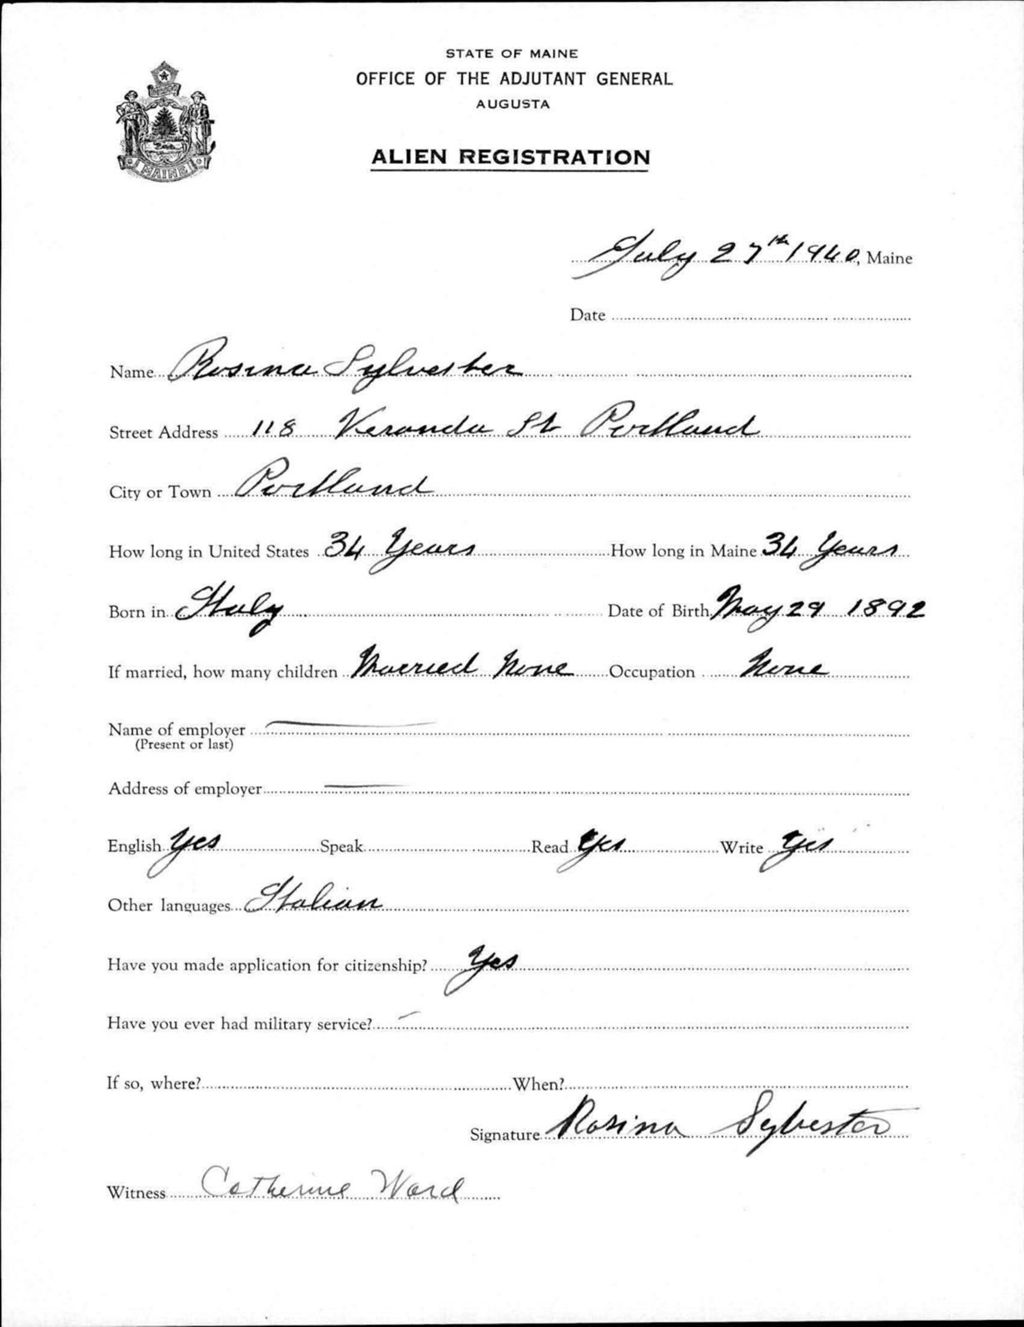 STATE OF MAINE
OFFICE OF THE ADJUTANT GENERAL
AUGUSTA
ALIEN REGISTRATION
MAINE
July 27th 1940, Maine
Date
Name Rosina Sylvester
Street Address 118 Veranda St Portland
City or Town Portland
How long in United States 34 Years How long in Maine 34 Years
Born in Italy Date of Birth May 29 1892
If married, how many children Married None Occupation None
Name of employer
(Present or last)
Address of employer
English Yes Speak Read Yes Write Yes
Other languages Italian
Have you made application for citizenship? Yes
Have you ever had military service? –
If so, where? When?
Signature Rosina Sylvester
Witness Catherine Ward